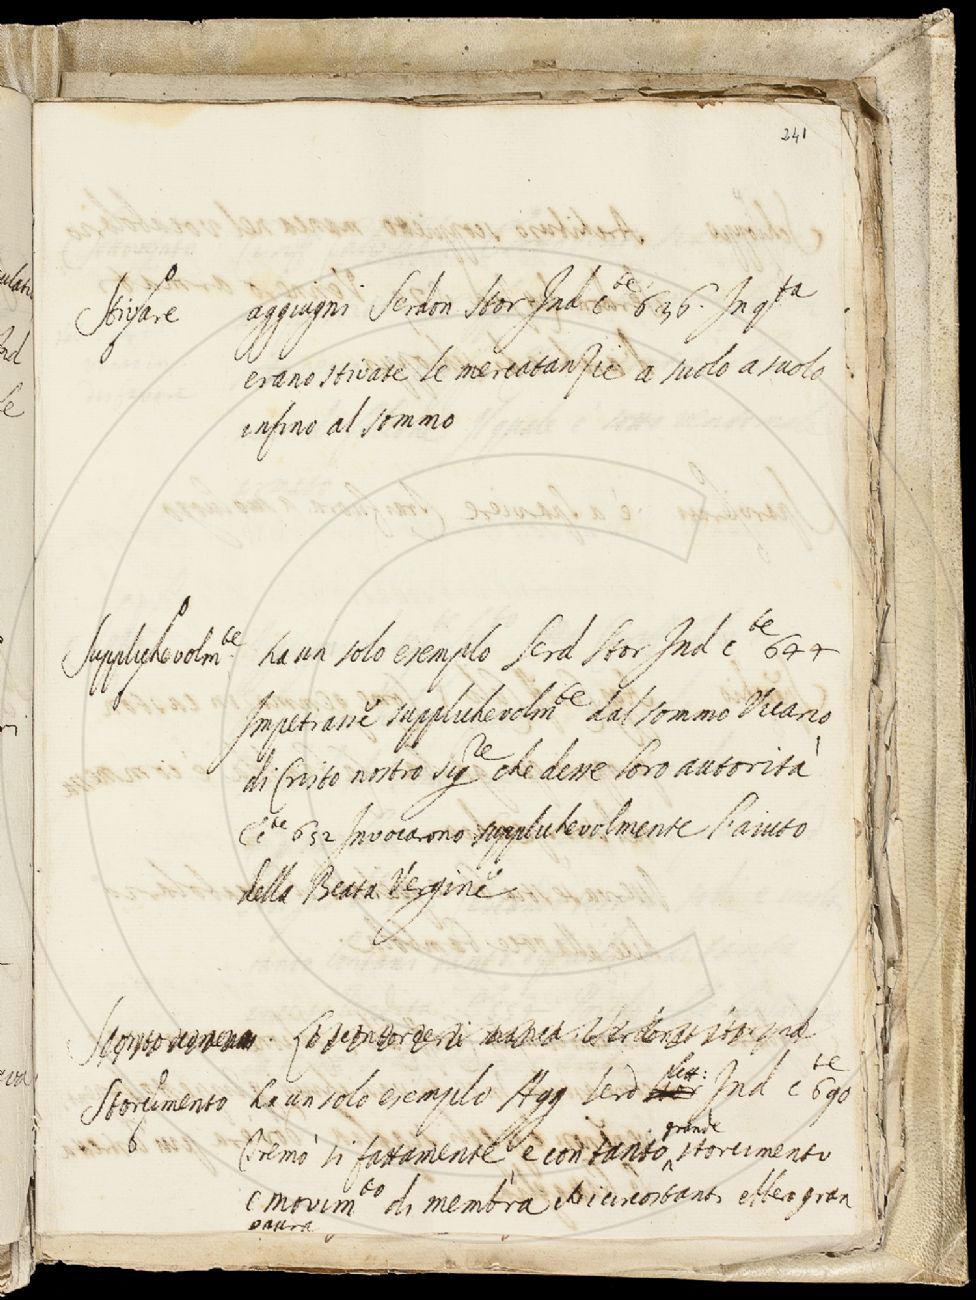 241
Stivare aggiugni Serdon Stor Ind c.te 636. In q.ta
erano stivate le mercatanzie a suolo a suolo
infino al sommo
Supplichevolm.te ha un solo esempio Serd Stor Ind c.te 644
Impetrasse supplichevolm.te dal sommo Vicario
di Cristo nostro Sig.re che desse loro autorità
C.te 652 Invocarono supplichevolmente l'aiuto
della Beata Vergine
Lo scontorcersi manca Stor Ind
Storcimento ha un solo esempio Agg Serd lett: Ind c.te 690
Tremò si fattamente e con tanto grande storcimento
e movim.to di membra che i circostanti ebber gran
paura